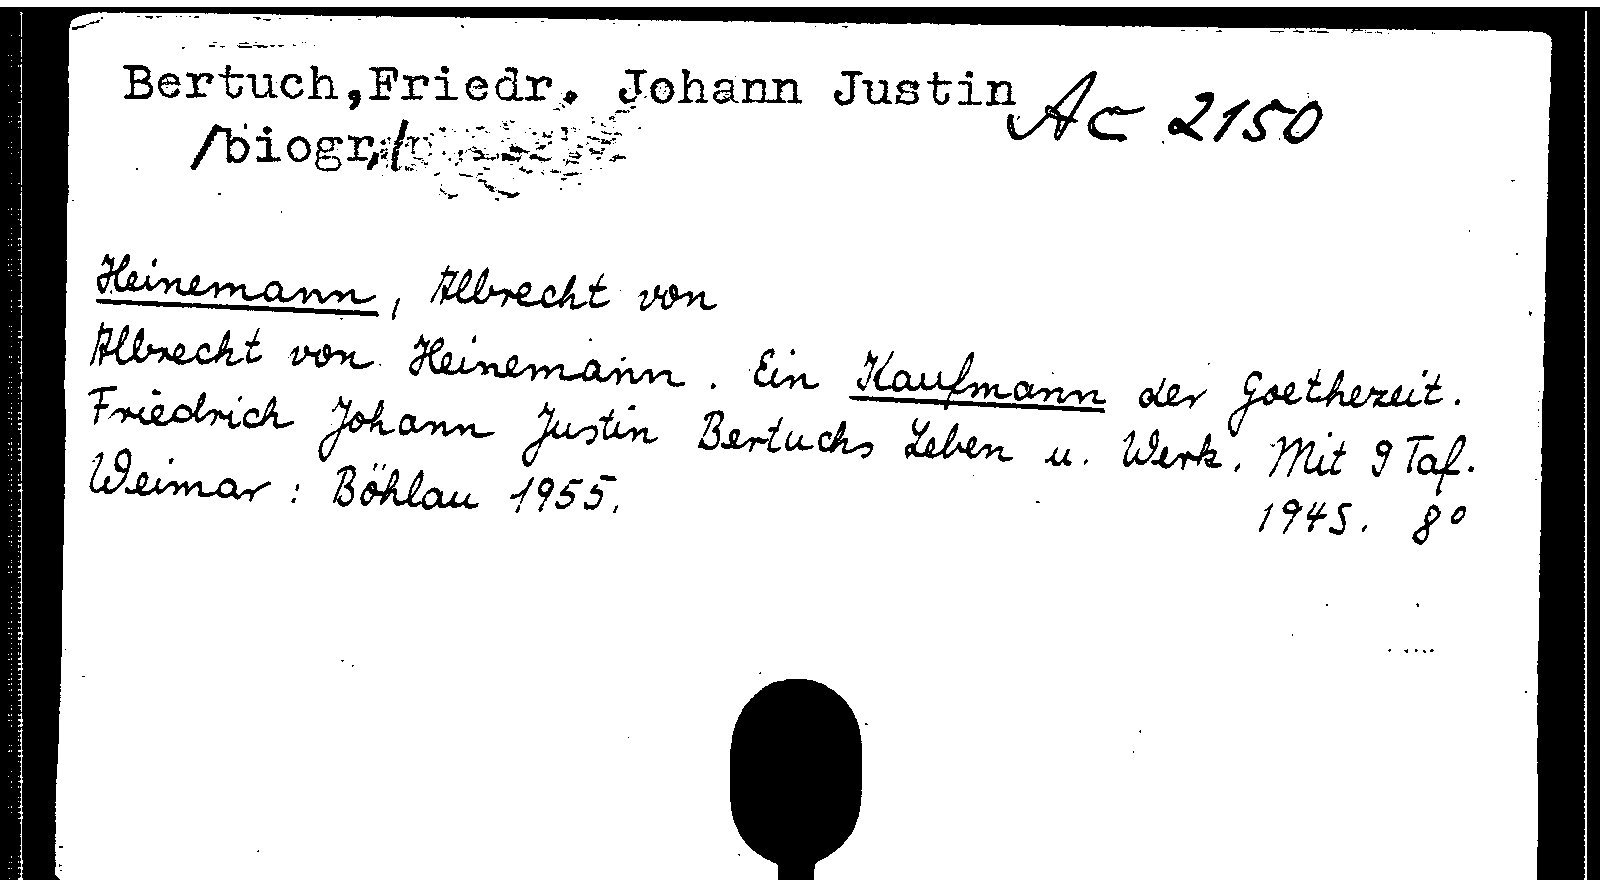 Bertuch,Friedr. Johann Justin Ac 2150
/biogr./
Heinemann, Albrecht von
Albrecht von Heinemann. Ein Kaufmann der Goethezeit.
Friedrich Johann Justin Bertuchs Leben u. Werk. Mit 9 Taf.
Weimar: Böhlau 1955.
194 S. 8°